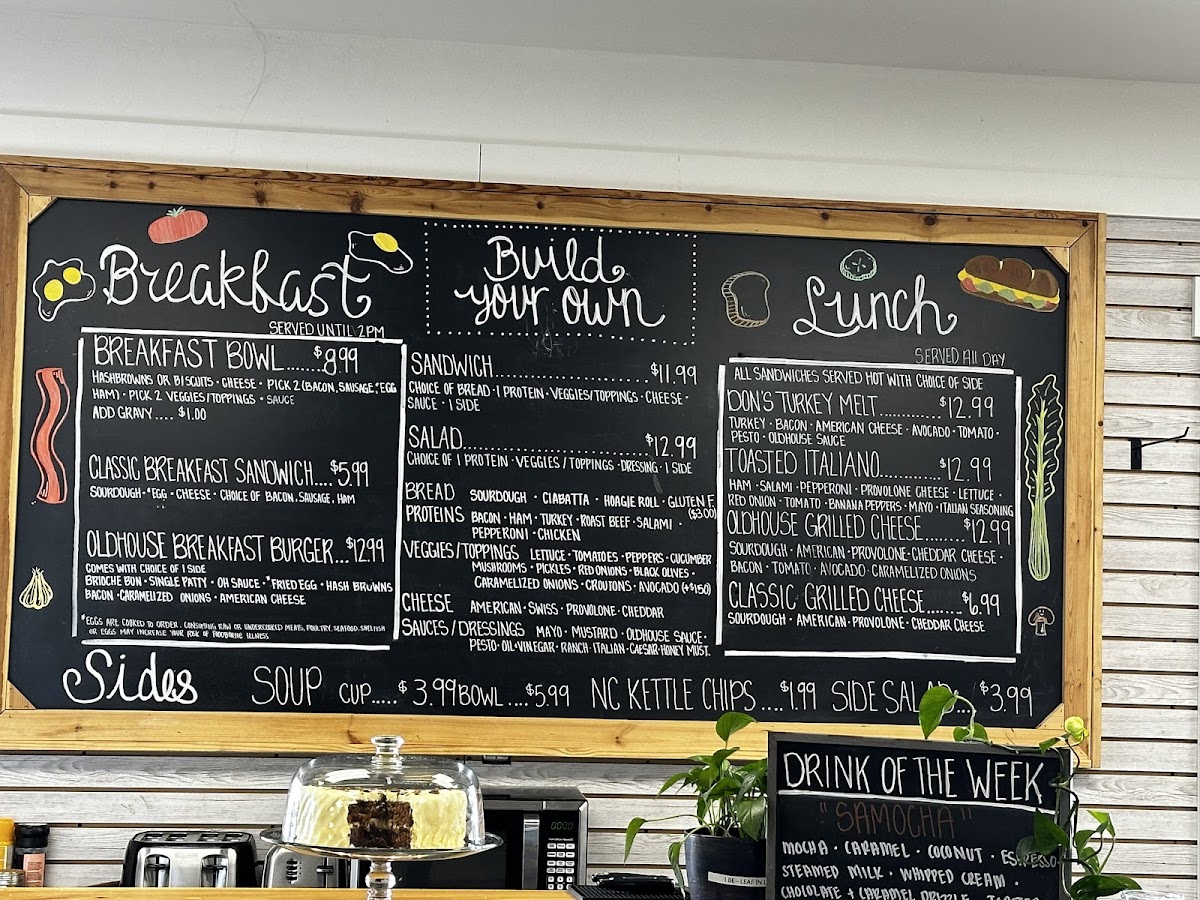 Breakfast
SERVED UNTIL 2PM
BREAKFAST BOWL......$8.99
HASHBROWNS OR BISCUITS · CHEESE · PICK 2 (BACON, SAUSAGE, *EGG
HAM) · PICK 2 VEGGIES/TOPPINGS · SAUCE
ADD GRAVY..... $1.00
CLASSIC BREAKFAST SANDWICH....$5.99
SOURDOUGH · *EGG · CHEESE · CHOICE OF BACON, SAUSAGE, HAM
OLDHOUSE BREAKFAST BURGER...$12.99
COMES WITH CHOICE OF 1 SIDE
BRIOCHE BUN · SINGLE PATTY · OH SAUCE · *FRIED EGG · HASH BROWNS
BACON · CARAMELIZED ONIONS · AMERICAN CHEESE
*EGGS ARE COOKED TO ORDER. CONSUMING RAW OR UNDERCOOKED MEATS, POULTRY, SEAFOOD, SHELLFISH
OR EGGS MAY INCREASE YOUR RISK OF FOODBORNE ILLNESS
Build
your own
SANDWICH..............................$11.99
CHOICE OF BREAD · 1 PROTEIN · VEGGIES/TOPPINGS · CHEESE ·
SAUCE · 1 SIDE
SALAD..............................$12.99
CHOICE OF 1 PROTEIN · VEGGIES/TOPPINGS · DRESSING · 1 SIDE
BREAD SOURDOUGH · CIABATTA · HOAGIE ROLL · GLUTEN F
($3.00)
PROTEINS BACON · HAM · TURKEY · ROAST BEEF · SALAMI ·
PEPPERONI · CHICKEN
VEGGIES/TOPPINGS LETTUCE · TOMATOES · PEPPERS · CUCUMBER
MUSHROOMS · PICKLES · RED ONIONS · BLACK OLIVES ·
CARAMELIZED ONIONS · CROUTONS · AVOCADO (+$1.50)
CHEESE AMERICAN · SWISS · PROVOLONE · CHEDDAR
SAUCES/DRESSINGS MAYO · MUSTARD · OLDHOUSE SAUCE ·
PESTO · OIL+VINEGAR · RANCH · ITALIAN · CAESAR · HONEY MUST.
Lunch
SERVED All DAY
ALL SANDWICHES SERVED HOT WITH CHOICE OF SIDE
DON'S TURKEY MELT............$12.99
TURKEY · BACON · AMERICAN CHEESE · AVOCADO · TOMATO ·
PESTO · OLDHOUSE SAUCE
TOASTED ITALIANO............$12.99
HAM · SALAMI · PEPPERONI · PROVOLONE CHEESE · LETTUCE ·
RED ONION · TOMATO · BANANA PEPPERS · MAYO · ITALIAN SEASONING
OLDHOUSE GRILLED CHEESE........$12.99
SOURDOUGH · AMERICAN · PROVOLONE · CHEDDAR CHEESE ·
BACON · TOMATO · AVOCADO · CARAMELIZED ONIONS
CLASSIC GRILLED CHEESE........$6.99
SOURDOUGH · AMERICAN · PROVOLONE · CHEDDAR CHEESE
Sides SOUP CUP..... $3.99 BOWL ....$5.99 NC KETTLE CHIPS ....$1.99 SIDE SALAD... $3.99
DRINK OF THE WEEK
"SAMOCHA"
MOCHA · CARAMEL · COCONUT · ESPRESSO
STEAMED MILK · WHIPPED CREAM ·
CHOCOLATE + CARAMEL DRIZZLE ·